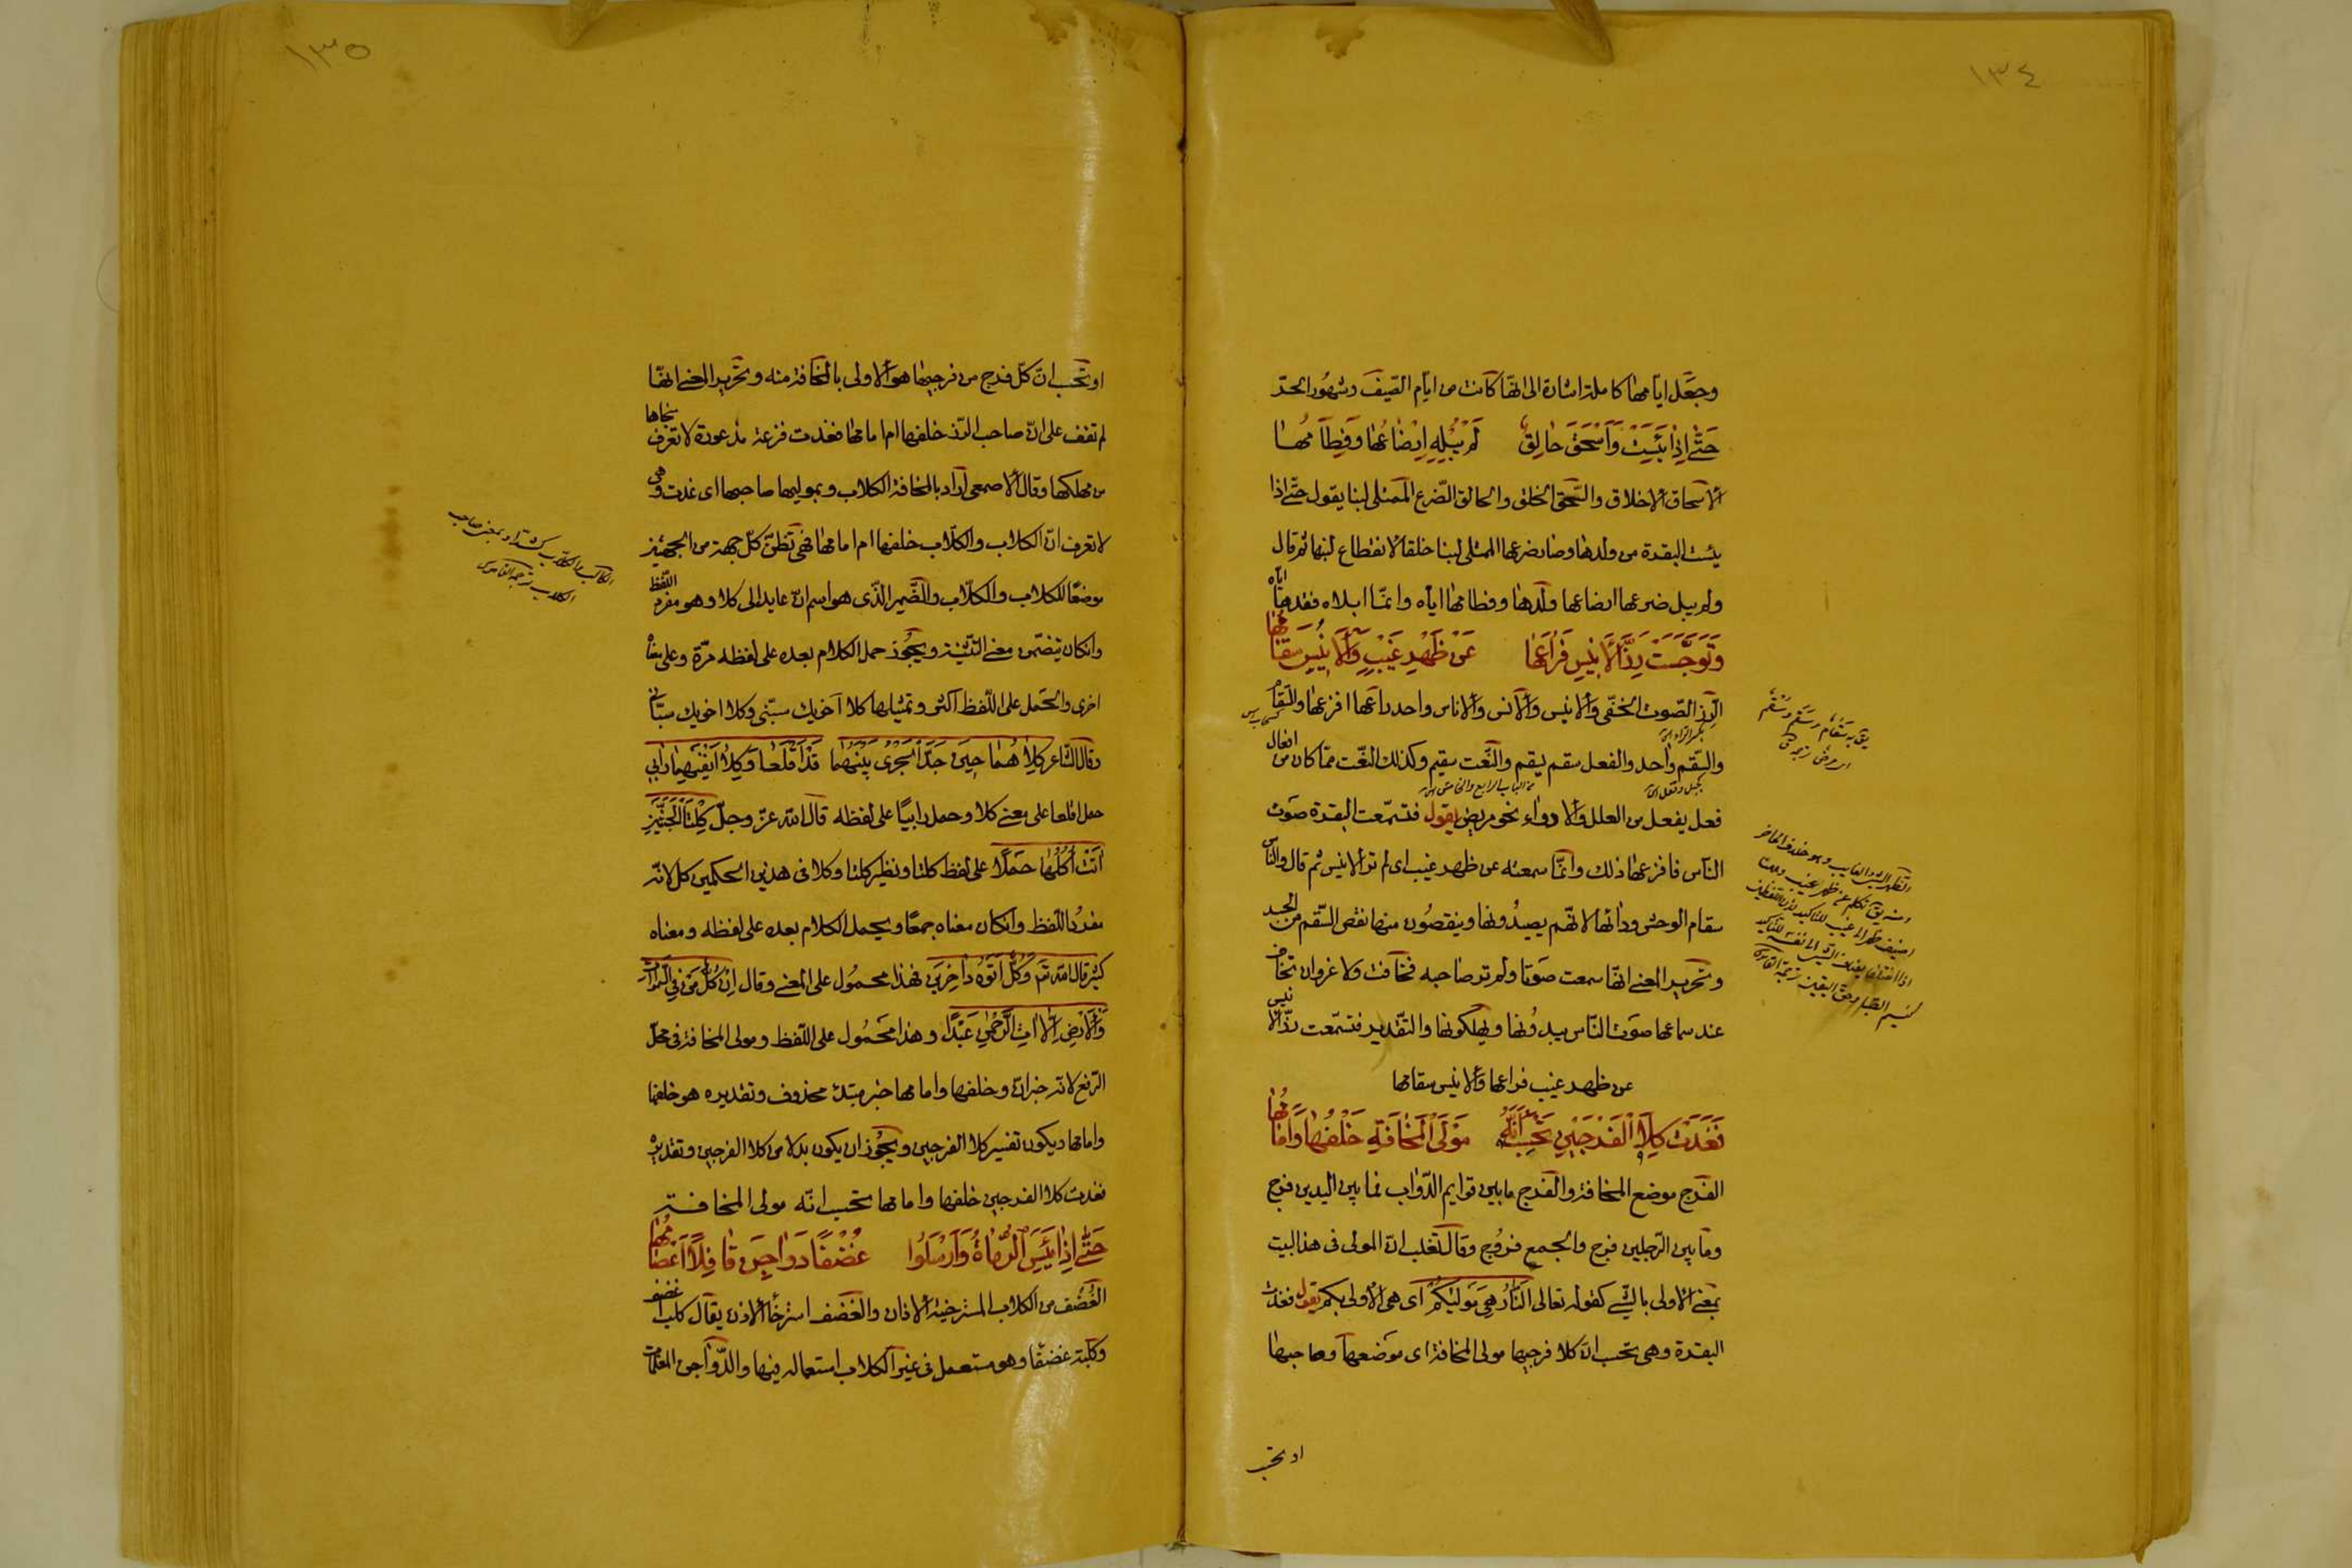 ١٣٤
وجعل ايامها كاملة اشارة الى انها كانت من ايام الصيف وشهور الحر
حَتّٰى اِذَا يَئِسَتْ وَاَسْحَقَ حَالِقٌ لَمْ يُبْلِهِ اِرْضَاعُهَا وَفِطَامُهَا
الاسحاق الاخلاق والسحق الخلق والحالق الضرع الممتلى لبنا يقول حتى اذا
يئست البقرة من ولدها وصار ضرعها الممتلى لبنا خلقا لانقطاع لبنها ثم قال
ولم يبل ضرعها ارضاعها ولدها وفطامها اياه وانما ابلاه فقدها اياه
وَتَوَجَّسَتْ رِزَّ الْاَنِيسِ فَرَاعَهَا عَنْ ظَهْرِ غَيْبٍ وَالْاَنِيسُ سَقَامُهَا
الرز الصوت الخفى والانيس والانس والاناس واحد راعها افزعها والسقام
والسقم واحد والفعل سقم يسقم والنعت سقيم وكذلك النعت مما كان من افعال
فعل يفعل من العلل والادواء نحو مريض يقول فتسمعت البقرة صوت
الناس فافزعها ذلك وانما سمعته عن ظهر غيب اى لم تر الانيس ثم قال والناس
سقام الوحش وداؤها لانهم يصيدونها وينقصون منها نقص السقم من الجسد
وتحرير المعنى انها سمعت صوتا ولم تر صاحبه فخافت ولا غرو ان تخاف
عند سماعها صوت الناس يبيدونها ويهلكونها والتقدير فتسمعت رز الانيس
عن ظهر غيب فراعها والانيس سقامها
فَغَدَتْ كِلَا الْفَرْجَيْنِ تَحْسِبُ اَنَّهُ مَوْلَى الْمَخَافَةِ خَلْفُهَا وَاَمَامُهَا
الفرج موضع المخافة والفرج ما بين قوايم الدواب فما بين اليدين فرج
وما بين الرجلين فرج والجمع فروج وقال ثعلب ان المولى فى هذا البيت
بمعنى الاولى بالشى كقوله تعالى النَّارُ هِىَ مَوْلٰيكُمْ اى هى الاولى بكم يقول فغدت
البقرة وهى تحسب ان كلا فرجيها مولى المخافة اى موضعها وصاحبها
او تحسب
١٣٥
او تحسب ان كل فرج من فرجيها هو الاولى بالمخافة منه وتحرير المعنى انها
لم تقف على ان صاحب الرز خلفها ام امامها فغدت فزعة مذعورة لا تعرف منجاها
من مهلكها وقال الاصمعى اراد بالمخافة الكلاب وبموليها صاحبها اى غدت وهى
لا تعرف ان الكلاب والكلاب خلفها ام امامها فهى تظن كل جهة من الجهتين
موضعا للكلاب والكلاب والضمير الذى هو اسم ان عايد الى كلا وهو مفرد اللفظ
وان كان يتضمن معنى التثنية ويجوز حمل الكلام بعده على لفظه مرة وعلى معناه
اخرى والحمل على اللفظ اكثر وتمثيلها كلا اخويك سبنى وكلا اخويك سبانى
وقال الشاعر كِلَاهُمَا حِينَ جَدَّ الْجَرْىُ بَيْنَهُمَا قَدْ اَقْلَعَا وَكِلَا اَنْفَيْهِمَا رَابِى
حمل اقلعا على معنى كلا وحمل رابيا على لفظه قال الله عز وجل كِلْتَا الْجَنَّتَيْنِ
اٰتَتْ اُكُلَهَا حملا على لفظ كلتا ونظير كلتا وكلا فى هذين الحكمين كل لانه
مفرد اللفظ وان كان معناه جمعا ويحمل الكلام بعده على لفظه ومعناه
كثير قال الله تع وَكُلٌّ اَتَوْهُ دَاخِرِينَ فهذا محمول على المعنى وقال اِنْ كُلُّ مَنْ فِى السَّمٰوَاتِ
وَالْاَرْضِ اِلَّا اٰتِى الرَّحْمٰنِ عَبْدًا وهذا محمول على اللفظ ومولى المخافة فى محل
الرفع لانه خبر ان وخلفها وامامها خبر مبتدء محذوف وتقديره هو خلفها
وامامها ويكون تفسير كلا الفرجين ويجوز ان يكون بدلا من كلا الفرجين وتقديره
فغدت كلا الفرجين خلفها وامامها تحسب انه مولى المخافة
حَتّٰى اِذَا يَئِسَ الرُّمَاةُ وَاَرْسَلُوا غُضْفًا دَوَاجِنَ قَافِلًا اَعْصَامُهَا
الغضف من الكلاب المسترخية الاذان والغضف استرخاء الاذن يقال كلب اغضف
وكلبة غضفا وهو مستعمل فى غير الكلاب استعماله فيها والدواجن المعلمات